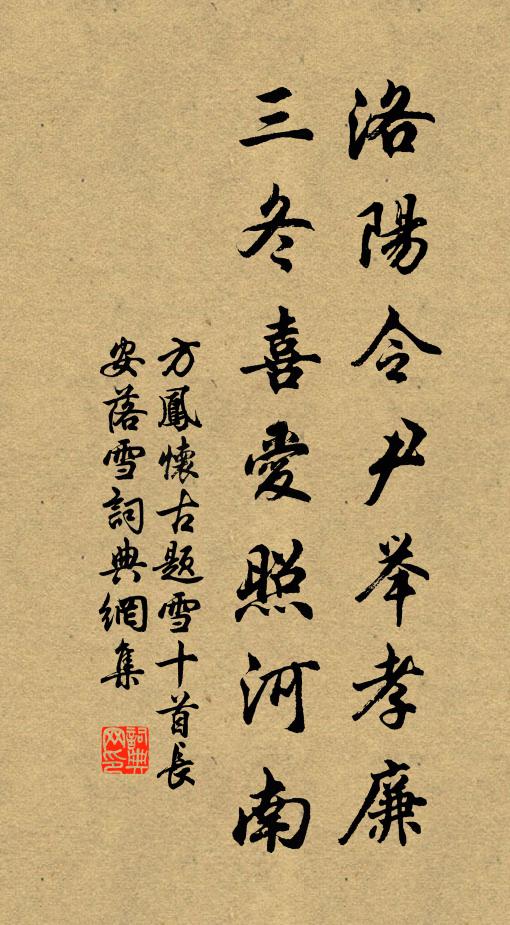 洛陽令尹举孝廉
三冬喜愛照河南
方鳳懷古題雪十首長
安落雪詞典網集
詞典
网印